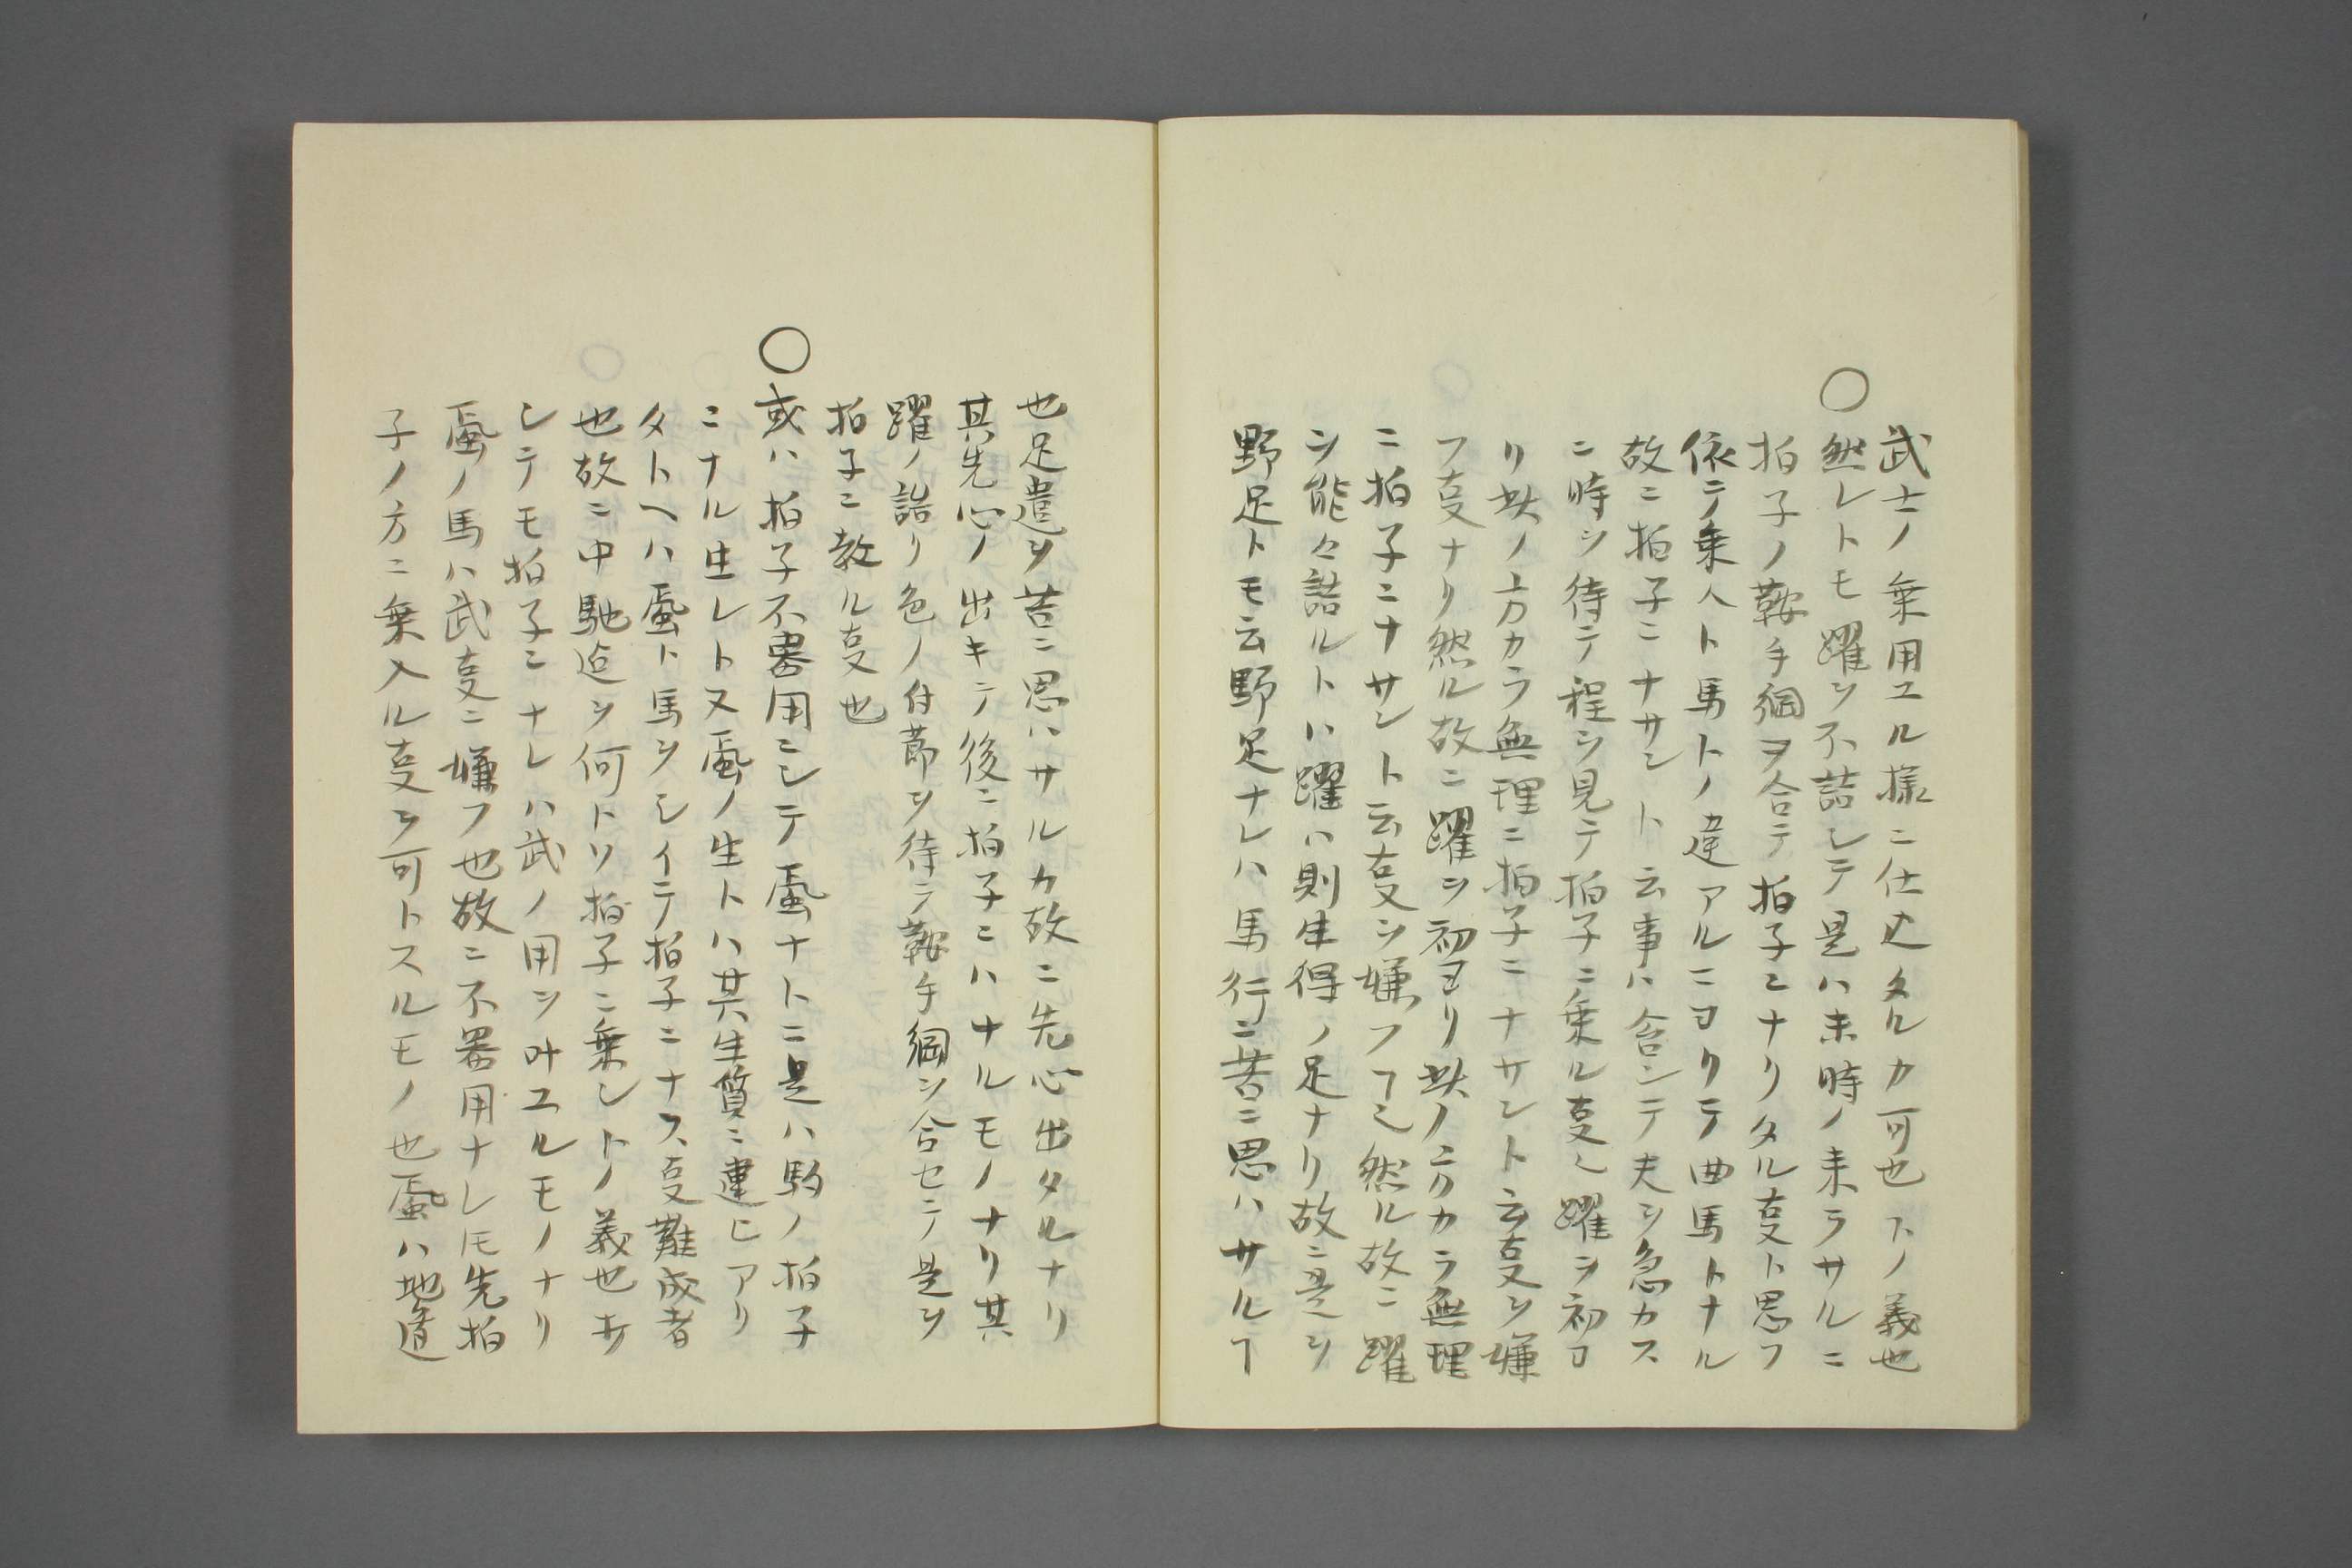 武士ノ乗用ユル様ニ仕込タルカ可也トノ義也
○然レトモ躍ヲ不詰シテ是ハ未時ノ来ラサルニ
拍子ノ鞍手綱ヲ合テ拍子ニナリタル夏ト思フ
依テ乗人ト馬トノ違アルニヨリテ曲馬トナル
故ニ拍子ニナサントス云事ハ含ンテ夫ヲ急カス
ニ時ヲ待テ程ヲ見テ拍子ニ乗ル夏ニ躍ヲ初ヨ
リ此ノ方カラ無理ニ拍子ニナサント云夏ヲ嫌
フ夏ナリ然ル故ニ躍ヲ初ヨリ此ノ方カラ無理
ニ拍子ニナサント云夏ヲ嫌フヿ也然ル故ニ躍
ヲ能々詰ルトハ躍ハ則生得ノ足ナリ故ニ是ヲ
野足トモ云野足ナレハ馬行ニ苦ニ思ハサルヿ
也足遣ヲ苦ニ思ハサルカ故ニ先心出タルナリ
其先心ノ出キテ後ニ拍子ニハナルモノナリ其
躍ノ詰リ色ノ付節ヲ待テ鞍手綱ヲ合セテ是ヲ
拍子ニ教ル夏也
○或ハ拍子不器用ニシテ蜃ナトニ是ハ駒ノ拍子
ニナル生レト又蜃ノ生トハ其生質ニ違ヒアリ
タトヘハ蜃ト馬ヲシイテ拍子ニナス夏難成者
也故ニ中馳迄ヲ何トソ拍子ニ乗シトノ義也キ
シテモ拍子ニナレハ武ノ用ヲ叶ユルモノナリ
蜃ノ馬ハ武夏ニ嫌フ也故ニ不器用ナレ𪜈先拍
子ノ方ニ乗入ル夏ヲ可トスルモノ也蜃ハ地道